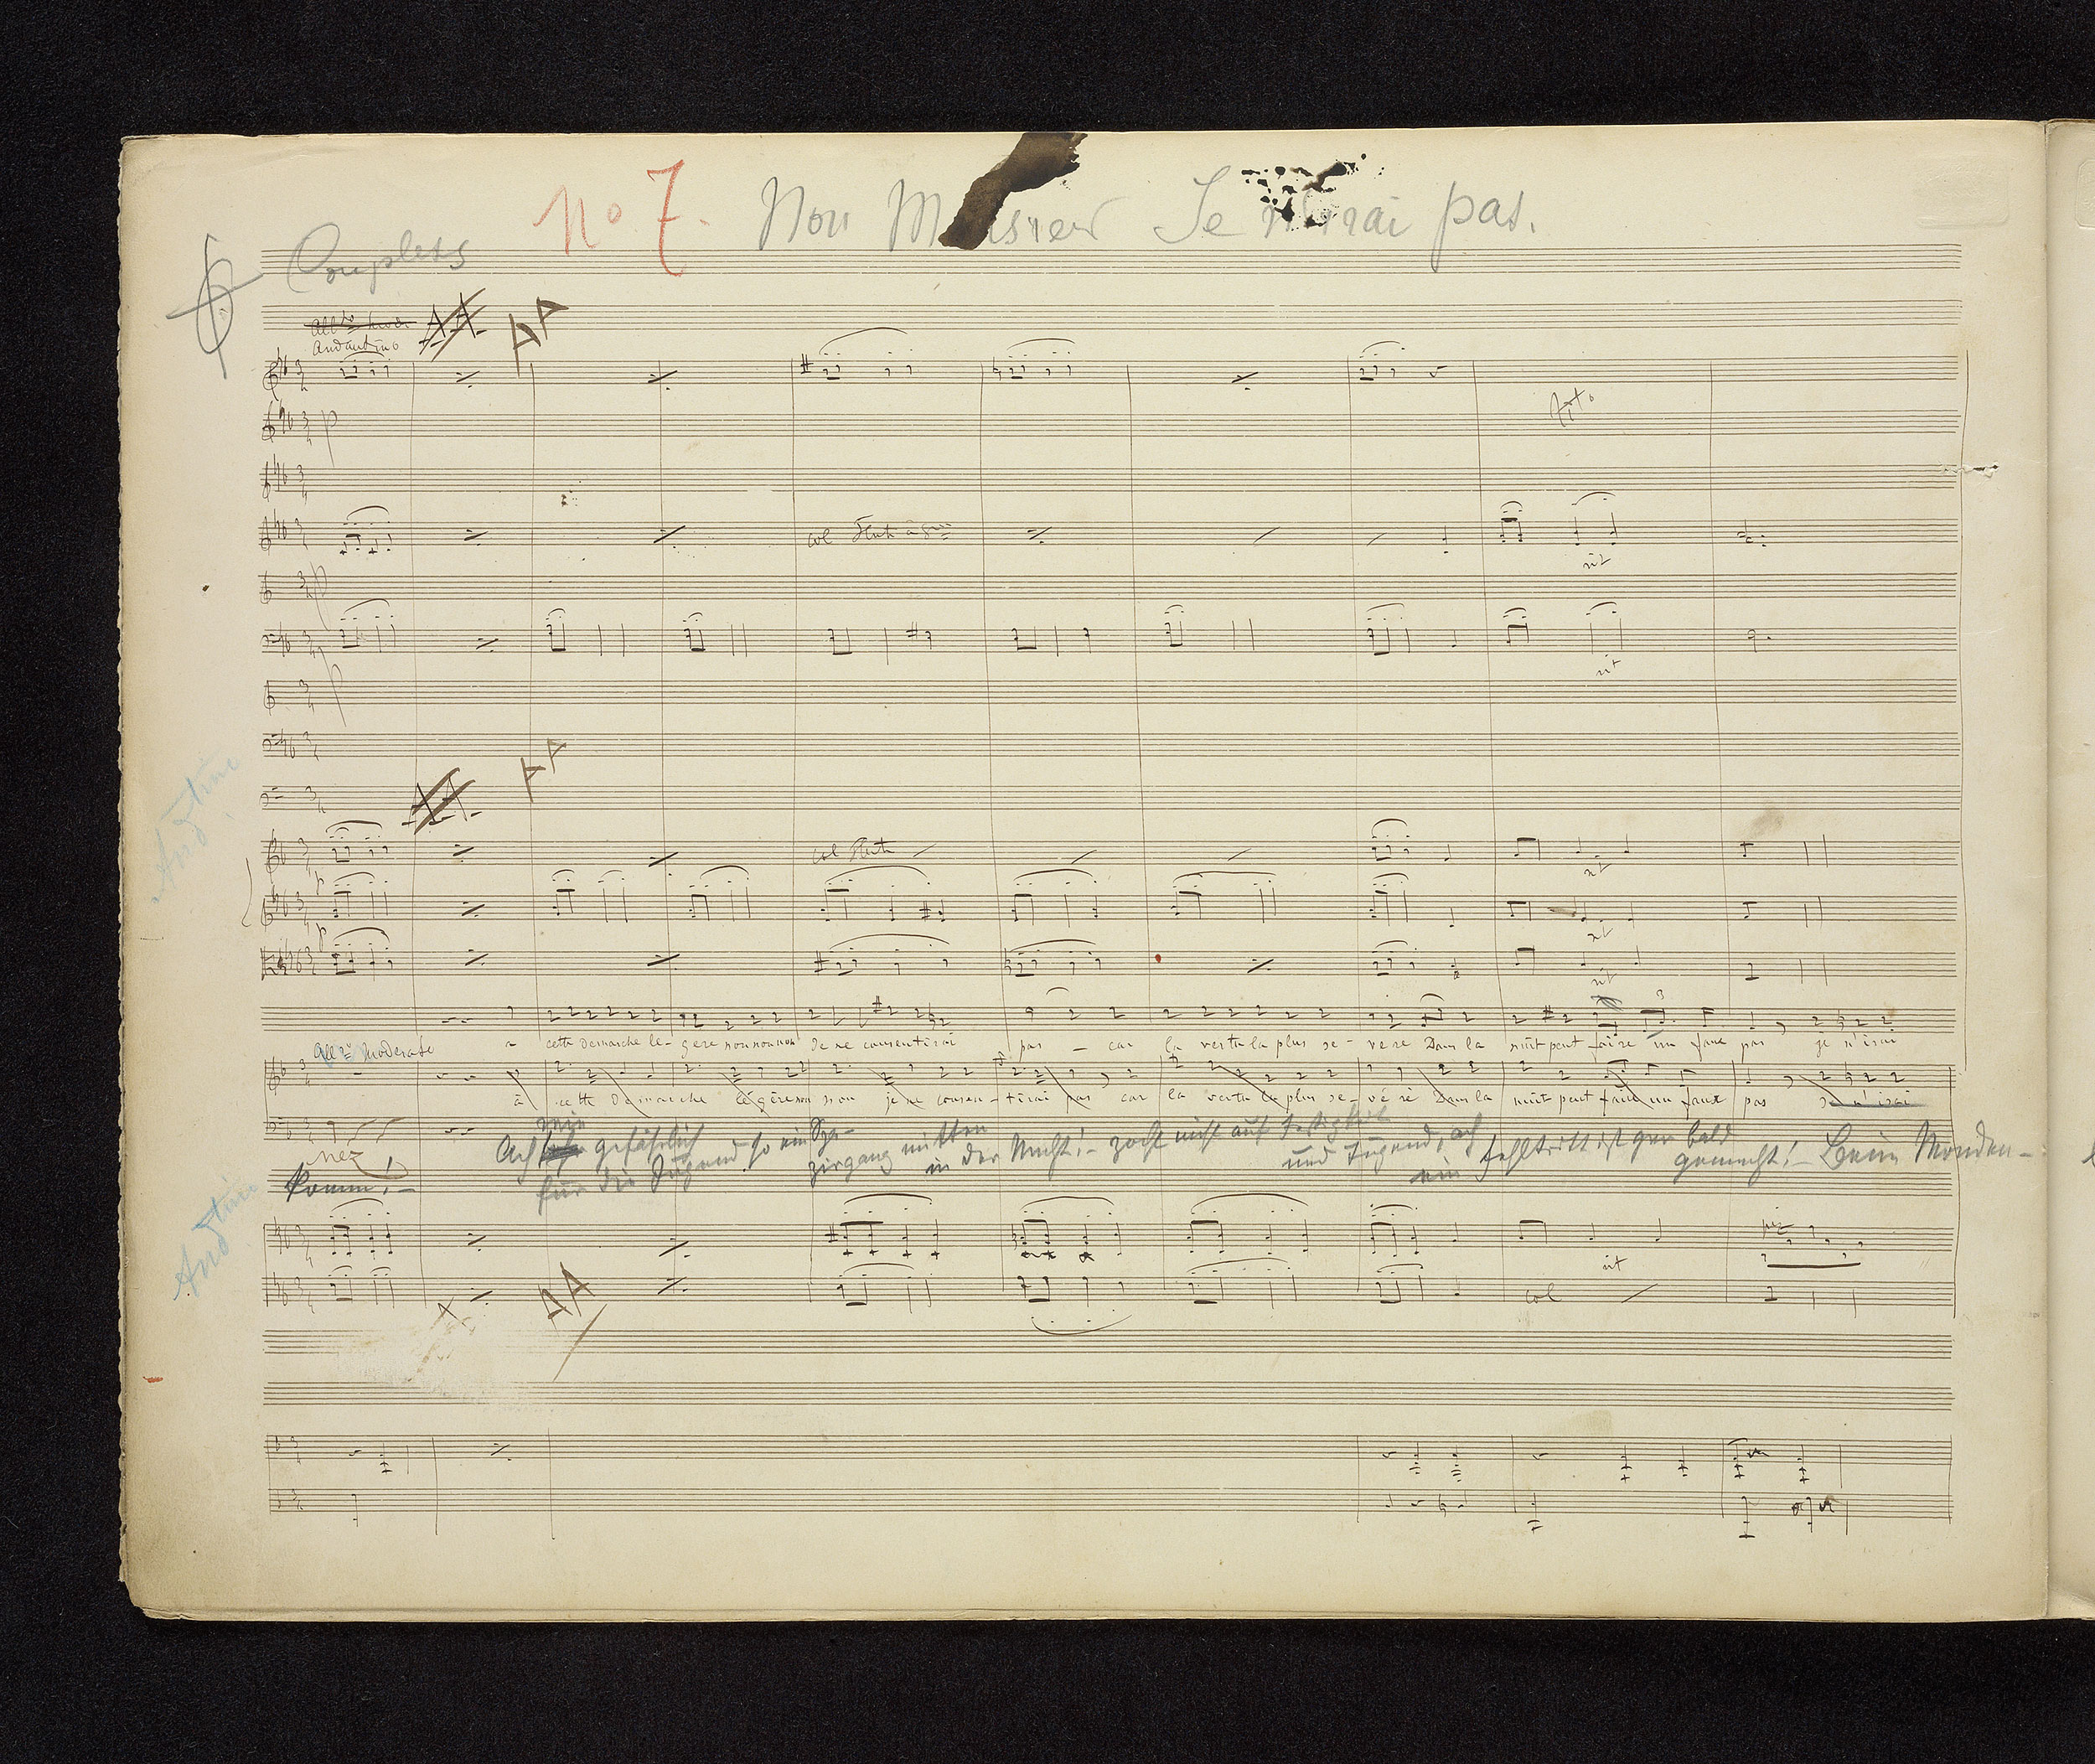 No 7. Non Monsieur Je n'irai pas.
Couplets
Allto mod
AA AA
Andantino
p
col Flute
rit
p
rit
Andtino
AA
AA
col Flute
rit
p
rit
p
rit
3
à cette démarche légère non non non je ne consentirai pas car la vertu la plus sévère Dans la nuit peut faire un faux pas je n'irai
All° Moderato
à cette démarche légère non non je ne consentirai pas car la vertu la plus sévère Dans la nuit peut faire un faux pas je n'irai
nez
wie
Ach gefährlich so ein Spa- mitten zocht nicht auf Festigkeit ach Fehltritt ist gar bald Beim Monden-
für die Jugend zirgang in der Nacht! und Tugend, ein gemacht!
Komm!
Andtino
piz
rit
AA
col